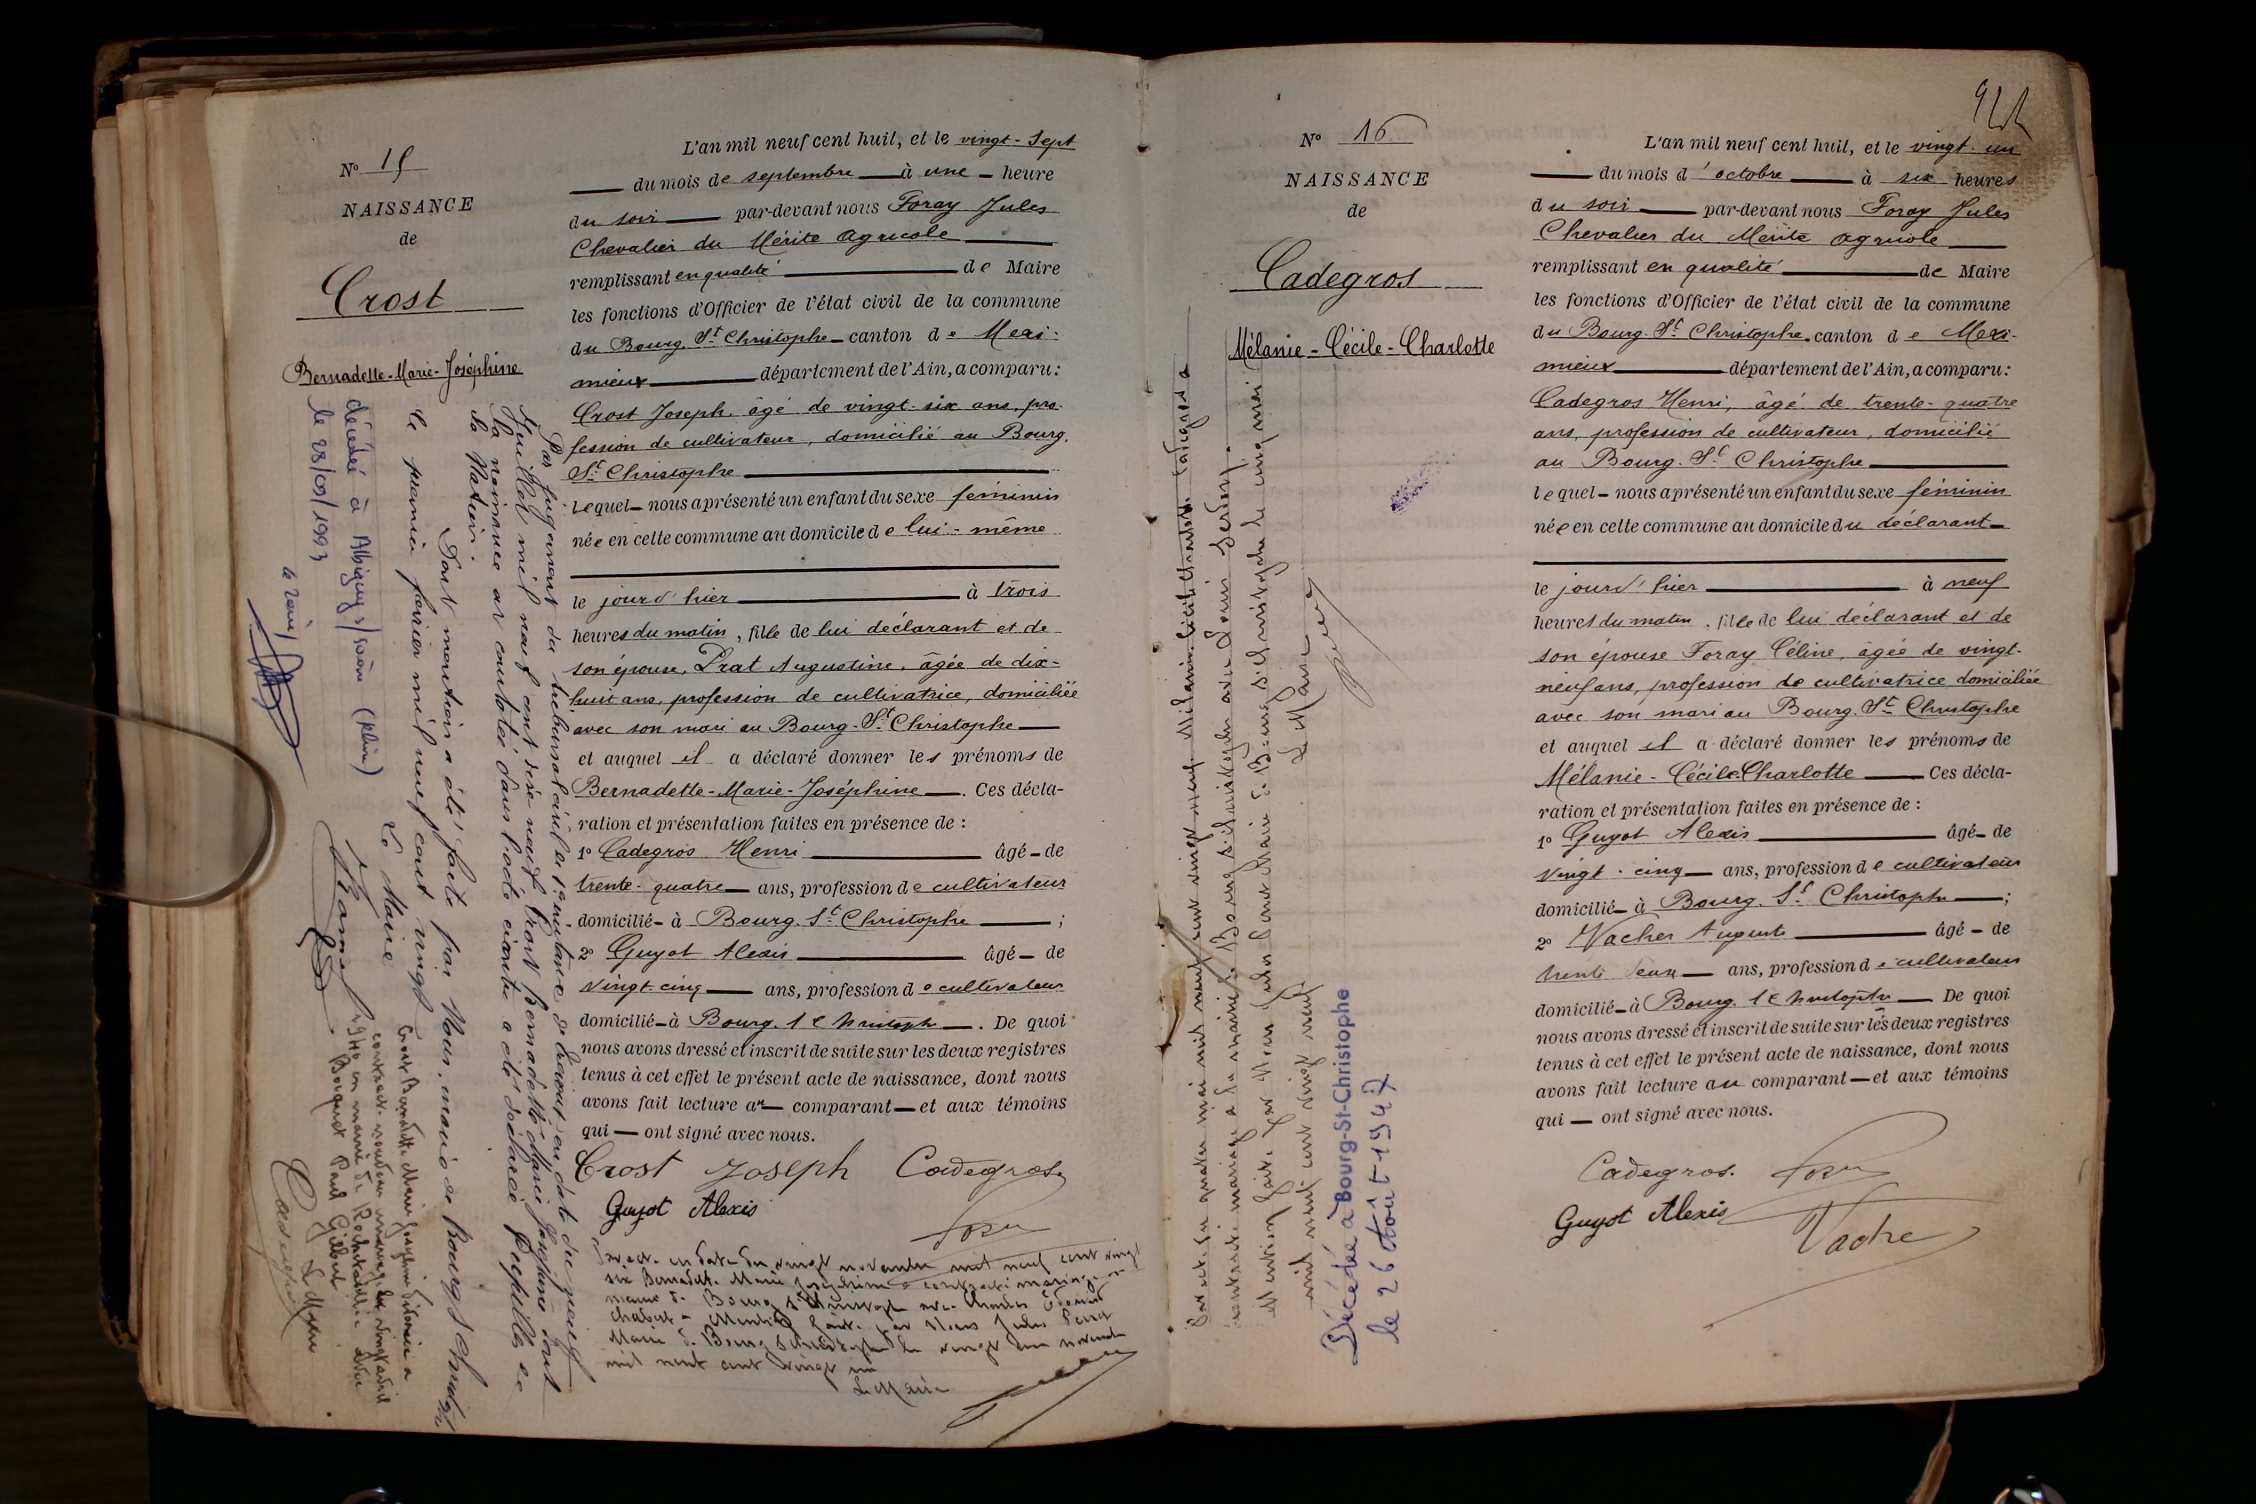 Nº 15
NAISSANCE
de
Crost
Bernadette-Marie-Joséphine
L'an mil neuf cent huit, et le vingt-sept
du mois de septembre à une heure
du soir par-devant nous Foray Jules
Chevalier du Mérite Agricole
remplissant en qualité de Maire
les fonctions d'Officier de l'état civil de la commune
du Bourg-St Christophe canton de Mexi-
mieux département de l'Ain, a comparu :
Crost Joseph, âgé de vingt-six ans, pro-
fession de cultivateur, domicilié au Bourg-
St Christophe
lequel nous a présenté un enfant du sexe féminin
née en cette commune au domicile de lui-même
le jour d'hier à trois
heures du matin, fille de lui déclarant et de
son épouse, Prat Augustine, âgée de dix-
huit ans, profession de cultivatrice, domiciliée
avec son mari au Bourg-St Christophe
et auquel il a déclaré donner les prénoms de
Bernadette-Marie-Joséphine. Ces décla-
ration et présentation faites en présence de :
1º Cadegros Henri âgé de
trente-quatre ans, profession de cultivateur
domicilié à Bourg-St Christophe ;
2º Guyot Alexis âgé de
vingt-cinq ans, profession de cultivateur
domicilié à Bourg St Christophe. De quoi
nous avons dressé et inscrit de suite sur les deux registres
tenus à cet effet le présent acte de naissance, dont nous
avons fait lecture au comparant et aux témoins
qui ont signé avec nous.
Crost Joseph Cadegros
Guyot Alexis
Foray
en date du vingt novembre mil neuf cent vingt
six Bernadette Marie Joséphine a contracté mariage en
mairie de Bourg St Christophe avec Charles
Mention faite par Nous Jules
Maire de Bourg St Christophe le vingt un novembre
mil neuf cent vingt six
Le Maire
Par jugement du tribunal civil de 1re instance de en date du neuf
Juillet mil neuf cent dix neuf Crost Bernadette Marie Joséphine dont
la naissance est constatée dans l'acte ci-contre a été déclarée Pupille de
la Nation.
Dont mention a été faite par Nous, maire de Bourg St Christophe
le premier février mil neuf cent vingt
Le Maire
décédée à Albigny s/ Saône (Rhône)
le 28/09/1993
Le Maire
Crost Bernadette Marie Joséphine divorcée a
contracté nouveau mariage le vingt avril
en mairie de avec
Bocquet Paul Gilbert
Le Maire
Nº 16
NAISSANCE
de
Cadegros
Mélanie-Cécile-Charlotte
L'an mil neuf cent huit, et le vingt-un
du mois d'octobre à six heures
du soir par-devant nous Foray Jules
Chevalier du Mérite Agricole
remplissant en qualité de Maire
les fonctions d'Officier de l'état civil de la commune
du Bourg-St Christophe canton de Mexi-
mieux département de l'Ain, a comparu :
Cadegros Henri, âgé de trente-quatre
ans, profession de cultivateur, domicilié
au Bourg-St Christophe
lequel nous a présenté un enfant du sexe féminin
née en cette commune au domicile du déclarant
le jour d'hier à neuf
heures du matin, fille de lui déclarant et de
son épouse Foray Céline, âgée de vingt-
neuf ans, profession de cultivatrice domiciliée
avec son mari au Bourg-St Christophe
et auquel il a déclaré donner les prénoms de
Mélanie-Cécile-Charlotte Ces décla-
ration et présentation faites en présence de :
1º Guyot Alexis âgé de
vingt-cinq ans, profession de cultivateur
domicilié à Bourg-St Christophe ;
2º Vacher Auguste âgé de
trente deux ans, profession de cultivateur
domicilié à Bourg St Christophe De quoi
nous avons dressé et inscrit de suite sur les deux registres
tenus à cet effet le présent acte de naissance, dont nous
avons fait lecture au comparant et aux témoins
qui ont signé avec nous.
Cadegros. Foray
Guyot Alexis
Vacher
Par acte du quatre mai mil neuf cent vingt neuf Mélanie Cécile Charlotte Cadegros a
contracté mariage à la mairie de Bourg St Christophe avec Louis
Mention faite par Nous Jules maire de Bourg St Christophe le cinq mai
mil neuf cent vingt neuf
Le Maire
Décédée à Bourg-St-Christophe
le 26 Août 1947